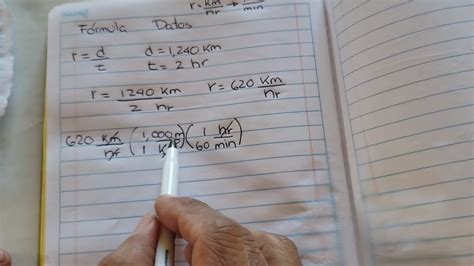 r = km/hr → m/min
Fórmula Datos
r = d/t d = 1,240 km
t = 2 hr
r = 1240 km / 2 hr r = 620 km/hr
620 km/hr (1,000 m / 1 km) (1 hr / 60 min)